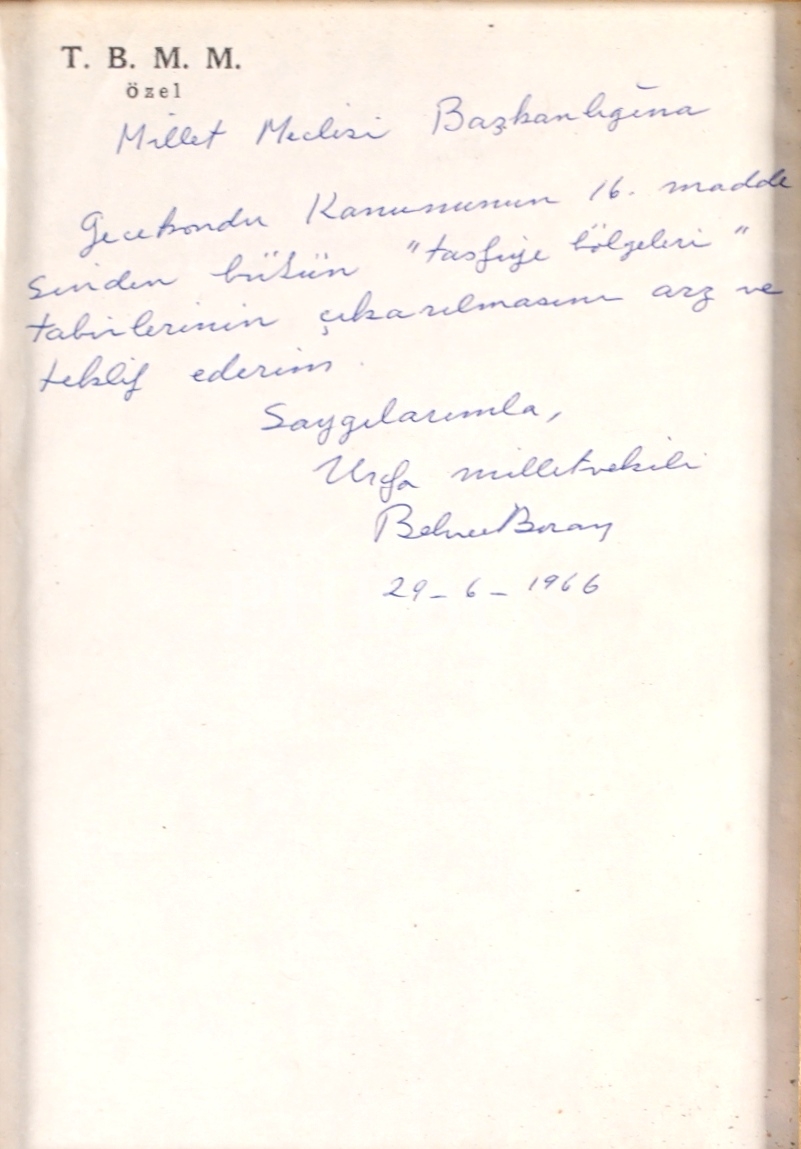 T. B. M. M.
özel
Millet Meclisi Başkanlığına
Gecekondu Kanununun 16. madde
sinden bütün "tasfiye bölgeleri"
tabirlerinin çıkarılmasını arz ve
teklif ederim.
Saygılarımla,
Urfa milletvekili
Behice Boran
29-6-1966